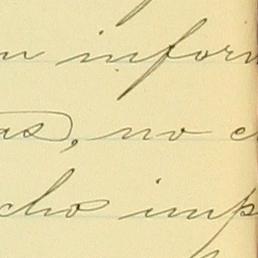 n inform
as, no c
chos imp